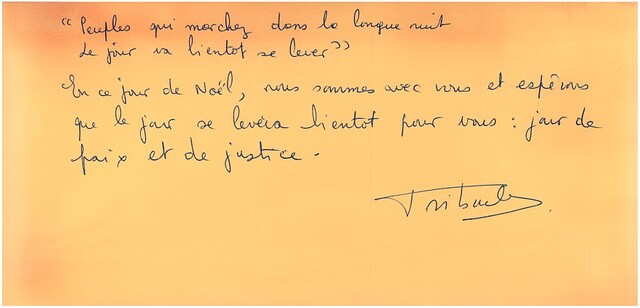 “ Peuples qui marchez dans la longue nuit
Le jour va bientot se lever ”
En ce jour de Noël, nous sommes avec vous et espérons
que le jour se lèvera bientot pour vous : jour de
paix et de justice .